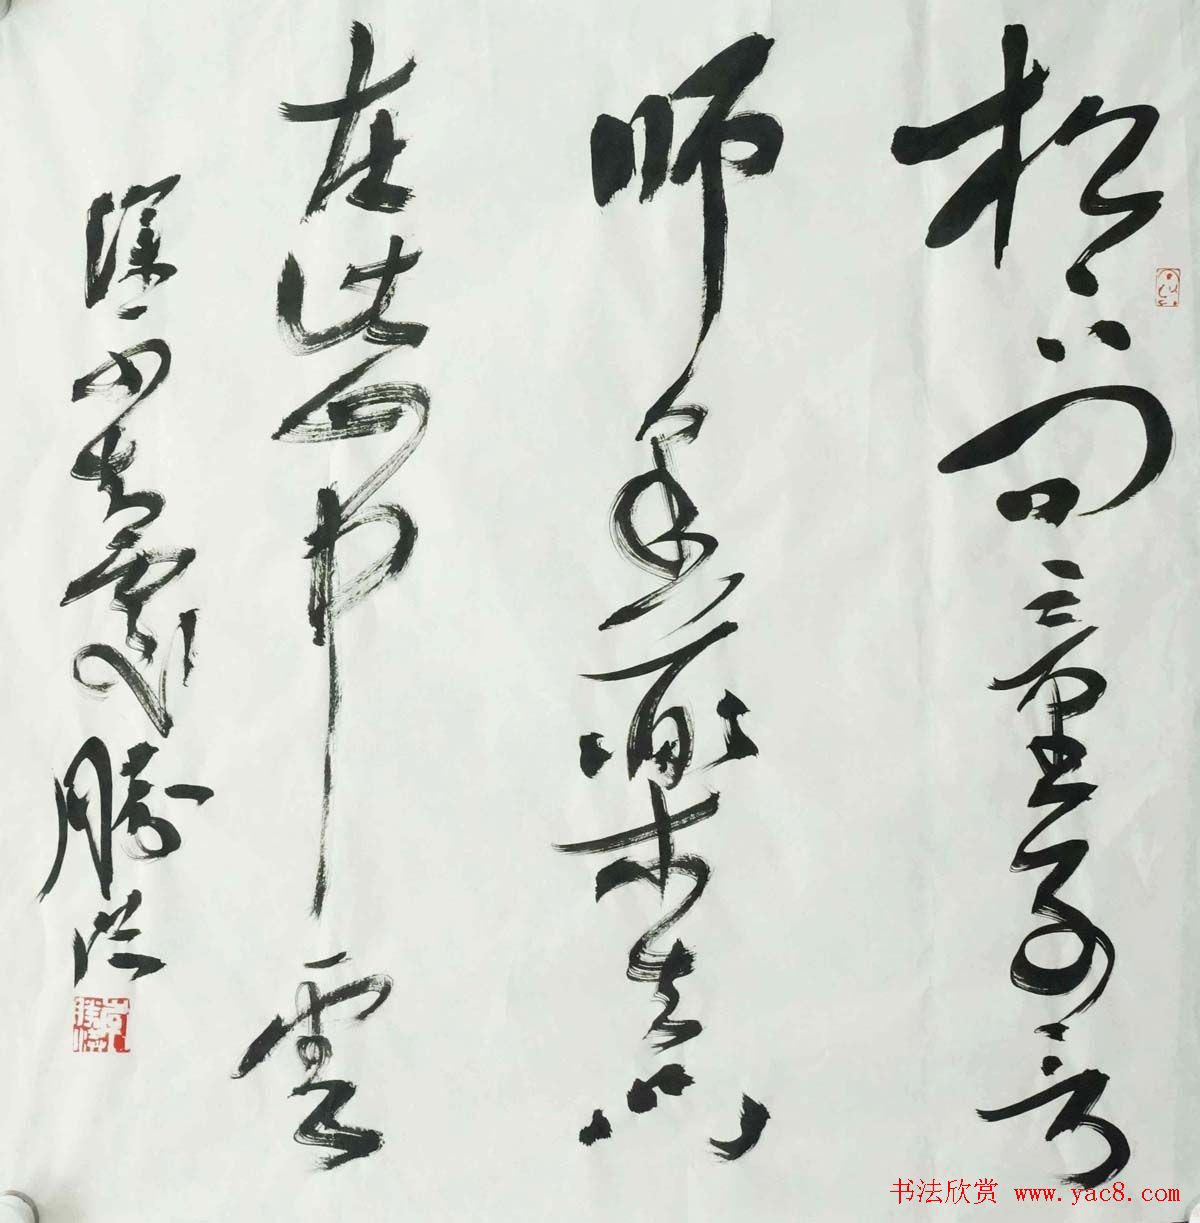 松下問童子言
師采藥去只
在此山中雲
深不知處勝洪
书法欣赏 www.yac8.com